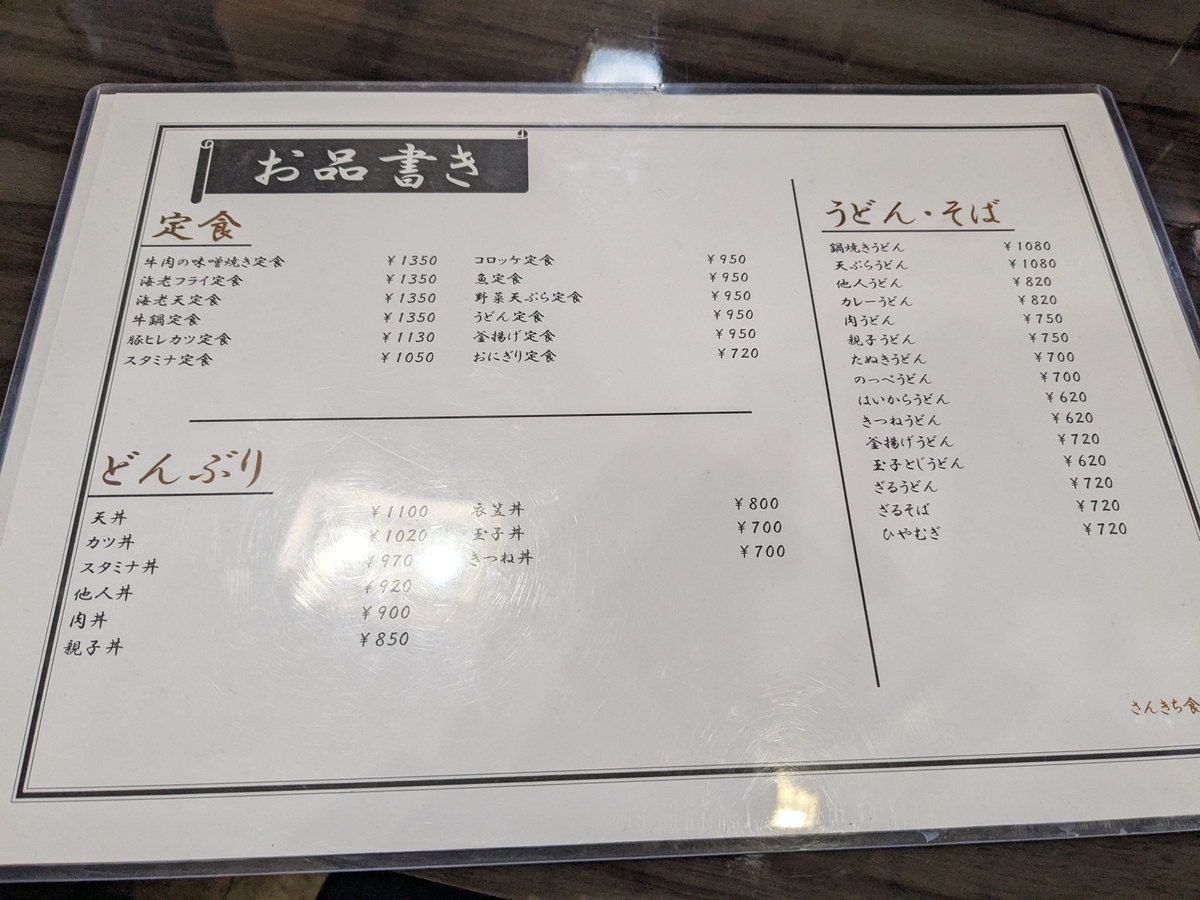 お品書き
定食
牛肉の味噌焼き定食 ¥1350
海老フライ定食 ¥1350
海老天定食 ¥1350
牛鍋定食 ¥1350
豚ヒレカツ定食 ¥1130
スタミナ定食 ¥1050
コロッケ定食 ¥950
魚定食 ¥950
野菜天ぷら定食 ¥950
うどん定食 ¥950
釜揚げ定食 ¥950
おにぎり定食 ¥720
どんぶり
天丼 ¥1100
カツ丼 ¥1020
スタミナ丼 ¥970
他人丼 ¥920
肉丼 ¥900
親子丼 ¥850
衣笠丼 ¥800
玉子丼 ¥700
きつね丼 ¥700
うどん・そば
鍋焼きうどん ¥1080
天ぷらうどん ¥1080
他人うどん ¥820
カレーうどん ¥820
肉うどん ¥750
親子うどん ¥750
たぬきうどん ¥700
のっぺうどん ¥700
はいからうどん ¥620
きつねうどん ¥620
釜揚げうどん ¥720
玉子とじうどん ¥620
ざるうどん ¥720
ざるそば ¥720
ひやむぎ ¥720
さんきち食